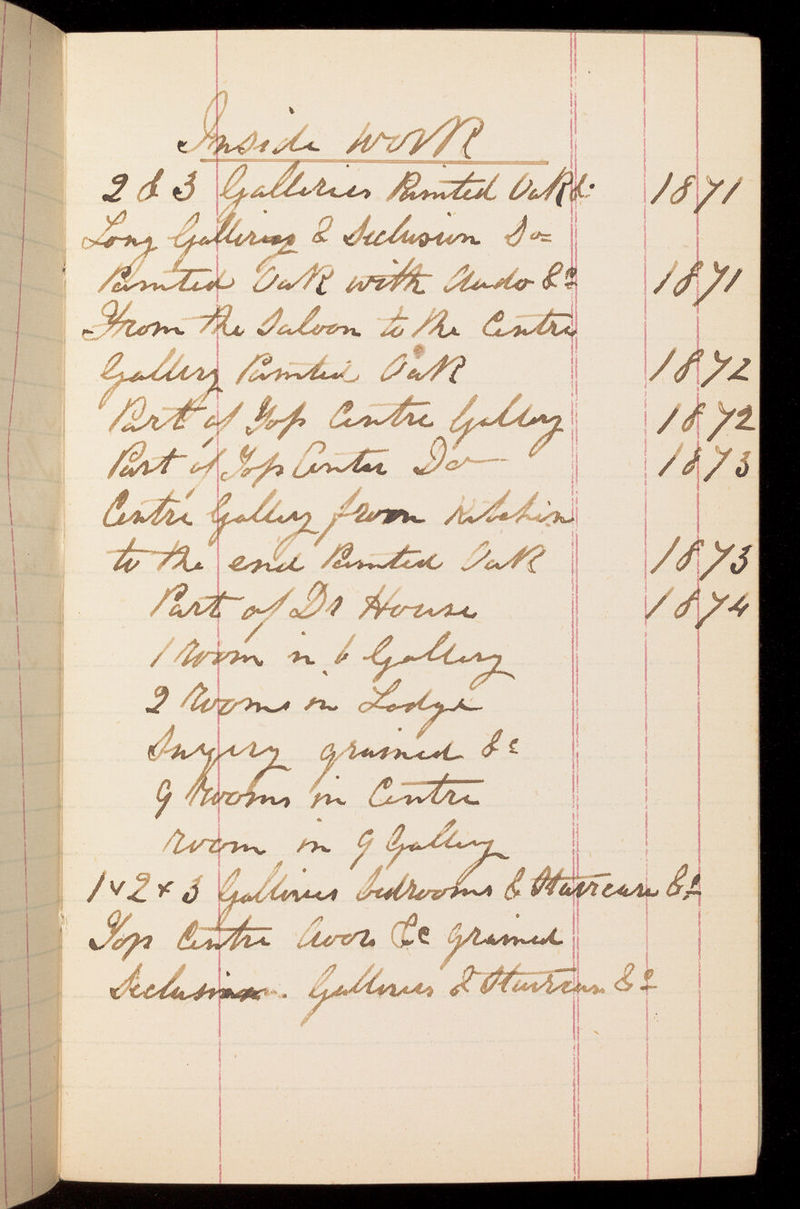 Inside Work
2 & 3 Galleries Painted Oak &c 1871
Long Galleries & Seclusion Do
Painted Oak with dado &c 1871
From the Saloon to the Centre
Gallery Painted Oak 1872
Part of Top Centre Gallery 1872
Part of Top Center Do 1873
Centre Gallery from Kitchin
to the end Painted Oak 1873
Part of Dr House 1874
1 room in 6 Gallery
2 Rooms in Lodge
Surgery grained &c
9 Rooms in Centre
room in 9 Gallery
1 & 2 & 3 Galleries bedrooms & Staircase &c
Top Centre doors &c grained
Seclusion Galleries & Staircase &c